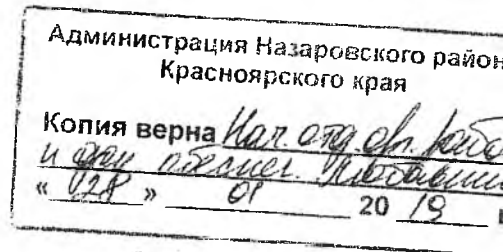 Администрация Назаровского район
Красноярского края
Копия верна Нач. отд. орг. рабо
и док
« 028 » 01 20 19